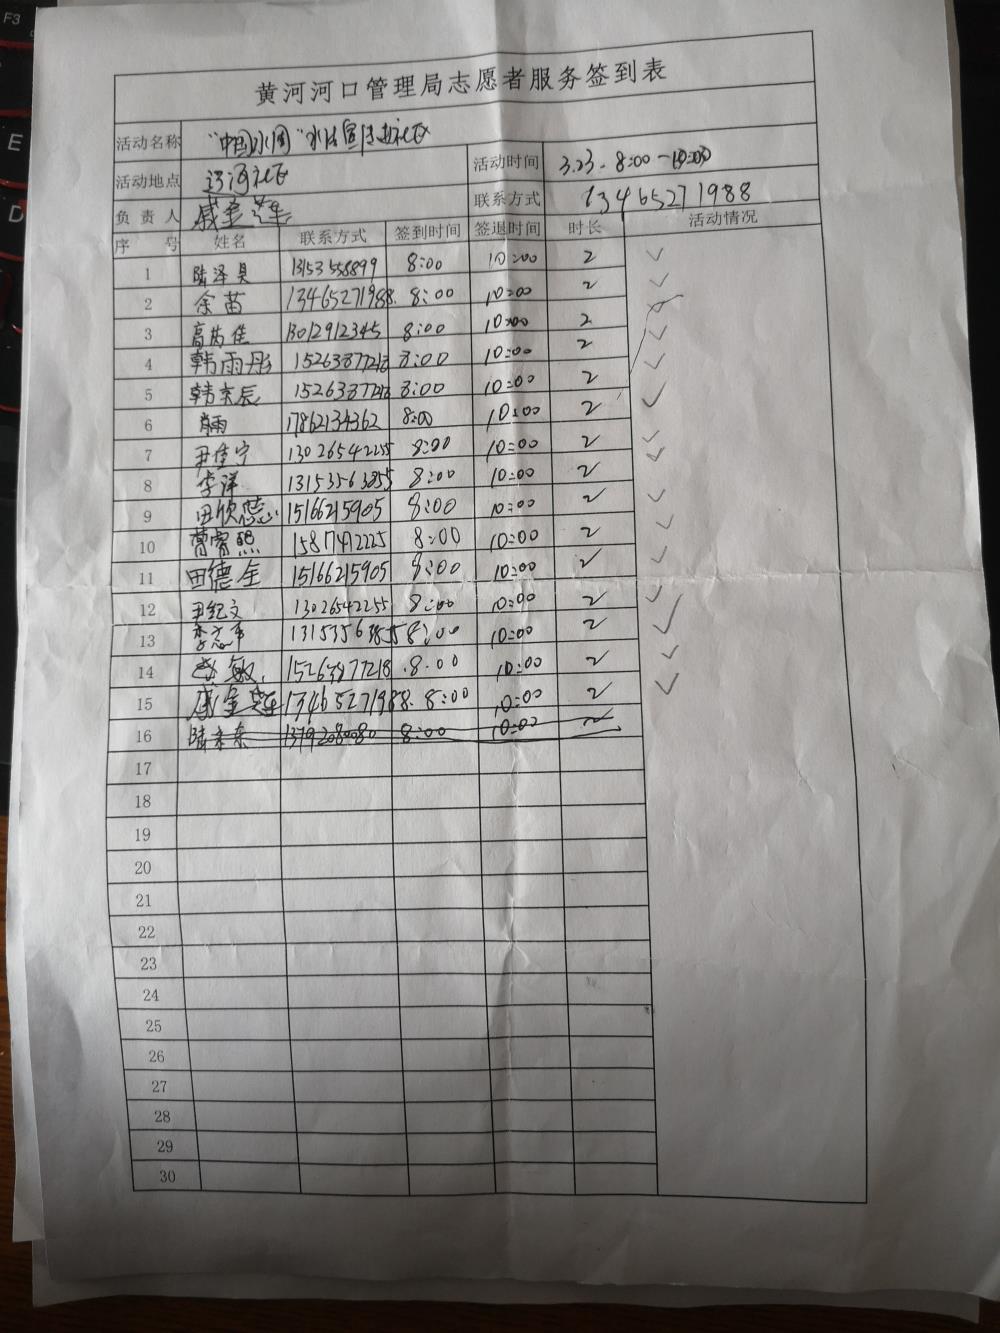 黄河河口管理局志愿者服务签到表
活动名称 "中国水周"水法宣传进社区
活动地点 辽河社区 活动时间 3.23. 8:00-10:00
负责人 戚金莲 联系方式 13465271988
序号 姓名 联系方式 签到时间 签退时间 时长 活动情况
1 陆泽昊 13153558899 8:00 10:00 2 ✓
2 余苗 13465271988 8:00 10:00 2 ✓
3 高芮佳 13012912345 8:00 10:00 2 ✓
4 韩雨彤 15263877218 8:00 10:00 2 ✓
5 韩京辰 15263877218 8:00 10:00 2 ✓
6 17862134362 8:00 10:00 2 ✓
7 尹佳宁 13026542255 8:00 10:00 2 ✓
8 李洋 13153563855 8:00 10:00 2 ✓
9 田欣蕊 15166215905 8:00 10:00 2 ✓
10 15817412225 8:00 10:00 2 ✓
11 田德全 15166215905 8:00 10:00 2 ✓
12 尹纪文 13026542255 8:00 10:00 2 ✓
13 李志军 13153563855 8:00 10:00 2 ✓
14 敏 15263877218 8:00 10:00 2 ✓
15 戚金莲 13465271988 8:00 10:00 2 ✓
16 13792080080 8:00 10:00 2
17
18
19
20
21
22
23
24
25
26
27
28
29
30
F3
E
D